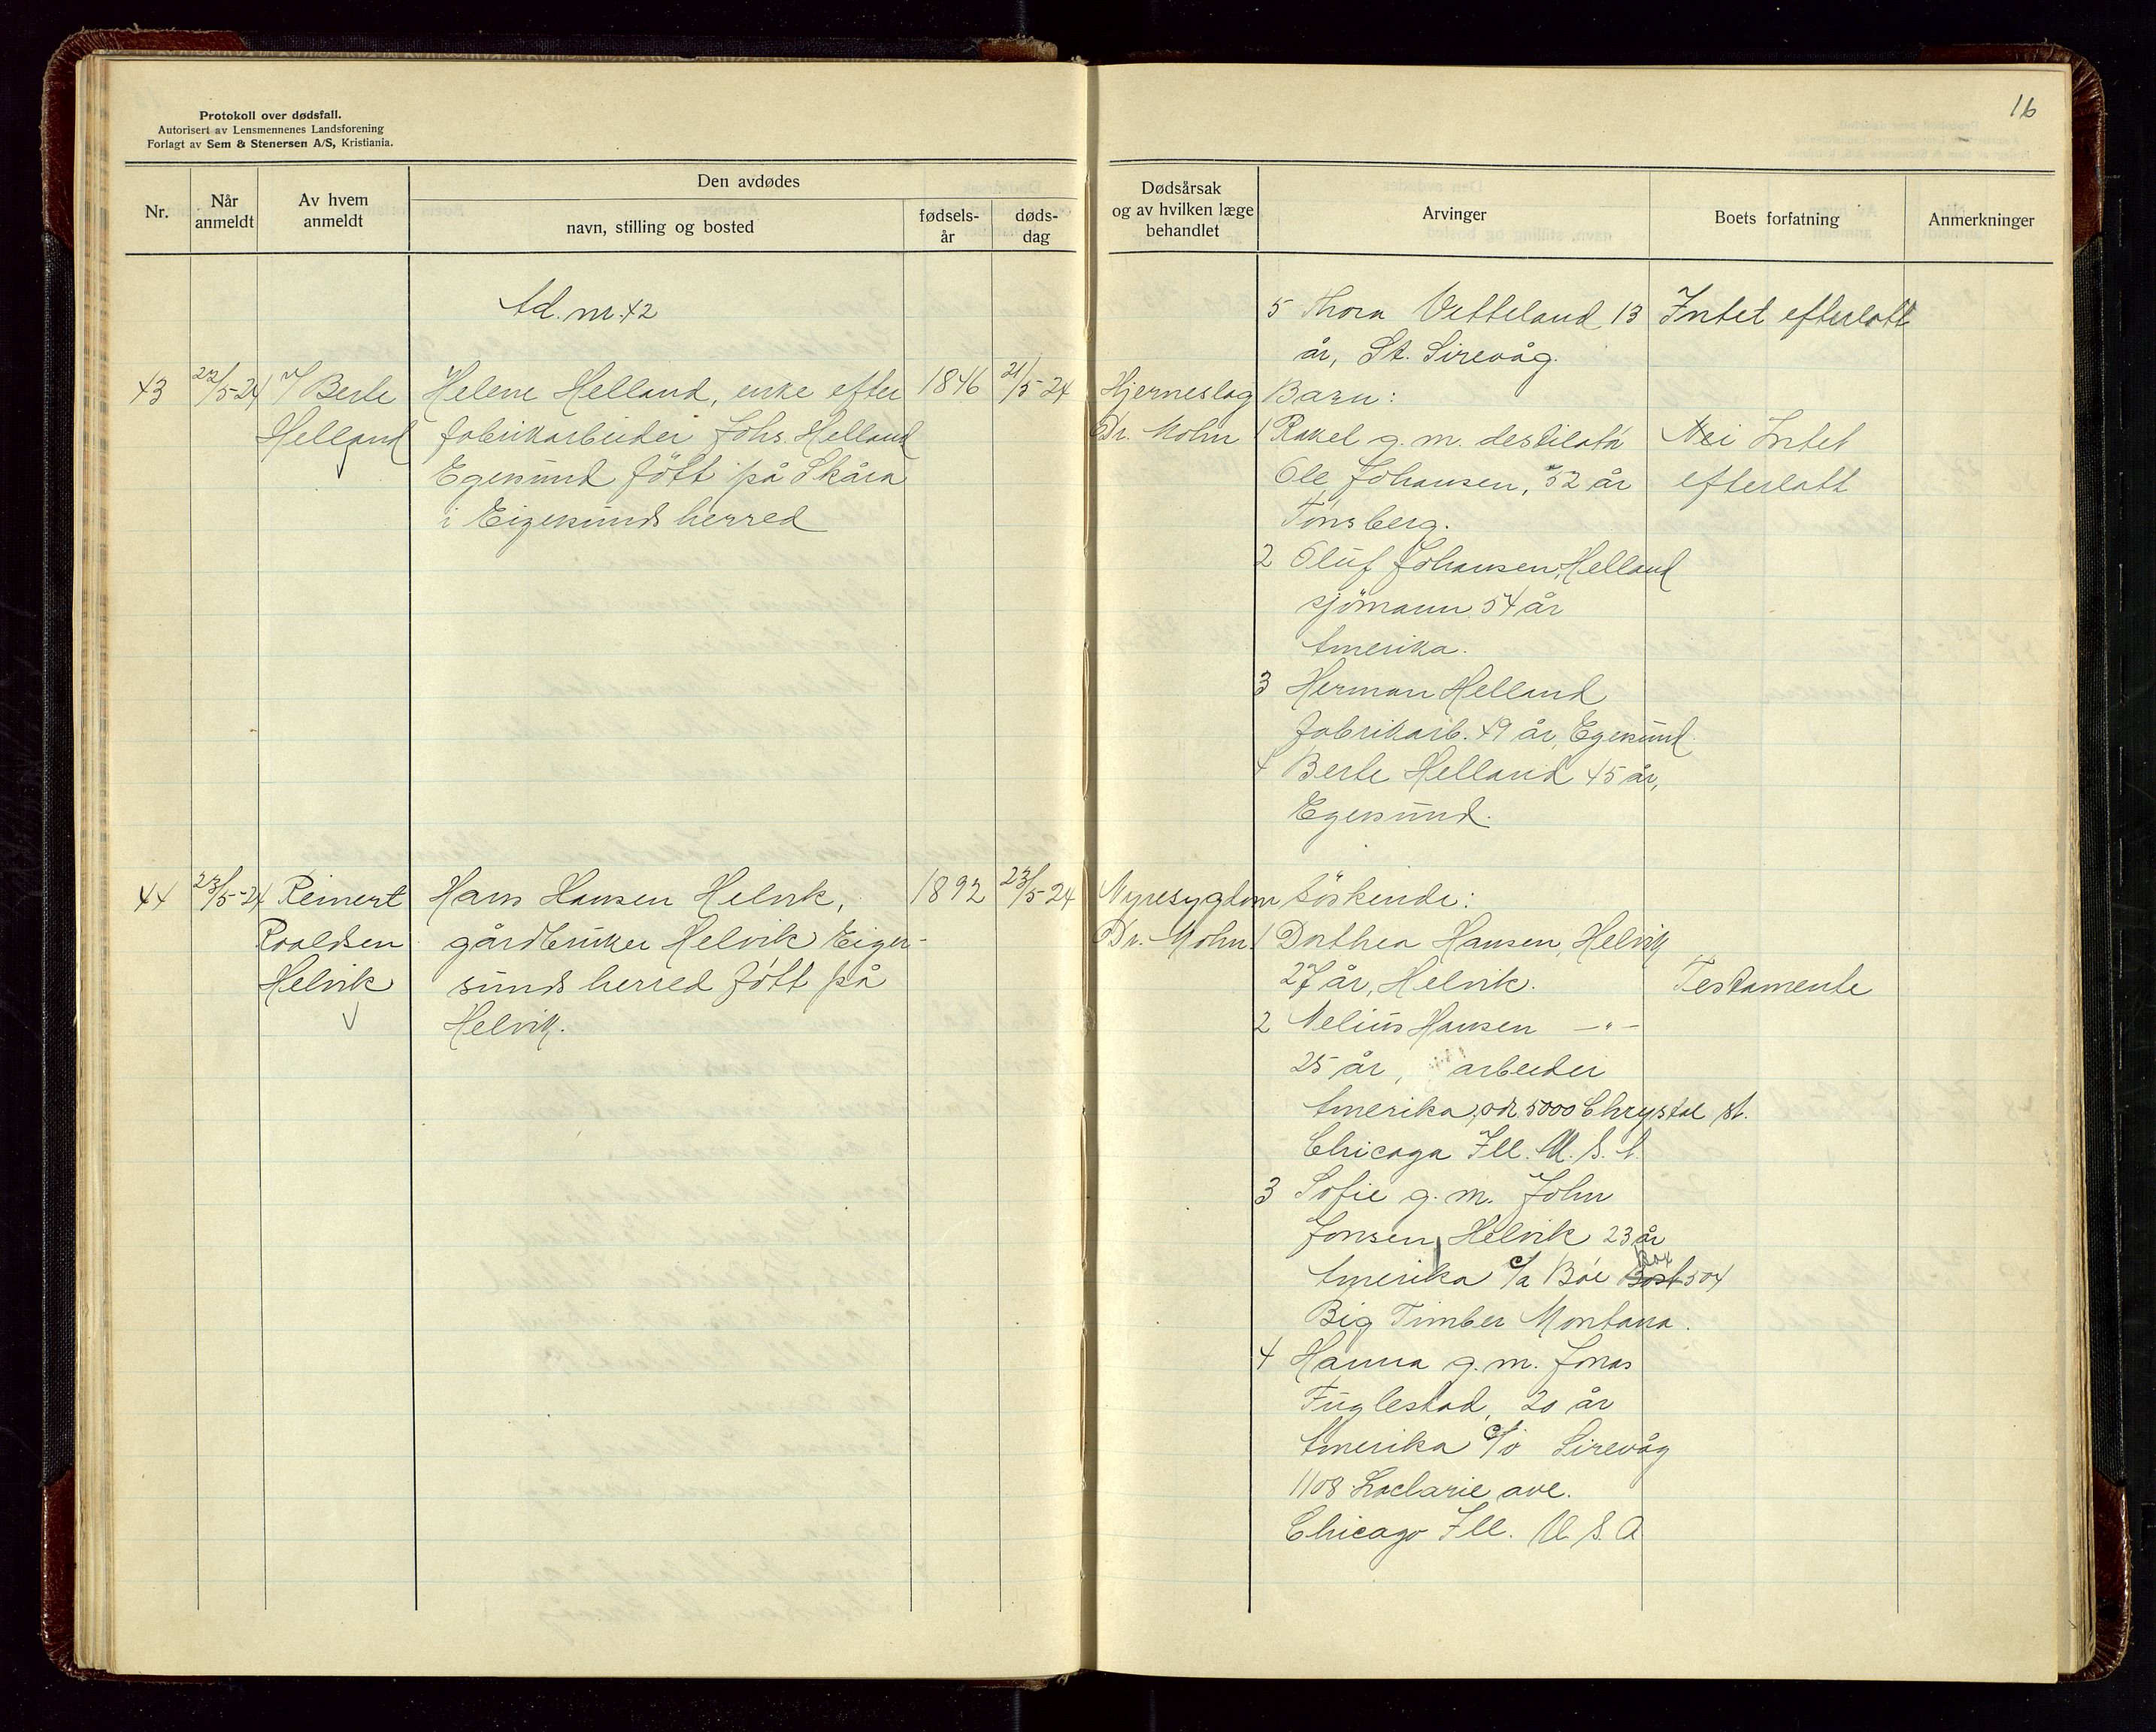 Protokoll over dødsfall.
Autorisert av Lensmennenes Landsforening
Forlagt av Sem & Stenersen A/S, Kristiania.
16
Nr.
Når anmeldt
Av hvem anmeldt
Den avdødes
navn, stilling og bosted
fødsels-år
døds-dag
Dødsårsak og av hvilken læge behandlet
Arvinger
Boets forfatning
Anmerkninger
Ad. nr. 42
5 Thora Vetteland 13
år, St. Sirevåg.
Intet efterlatt
43
22/5-24
v/ Berte
Helland
Helene Helland, enke efter
fabrikarbeider Johs. Helland
Egersund født på Skåra
i Eigersunds herred
1846
21/5-24
Hjerneslag
Dr. Mohn
Barn:
1 Rakel g. m. destilatør
Ole Johansen, 52 år
Tønsberg.
2 Oluf Johansen, Helland
sjömann 54 år
Amerika.
3 Herman Helland
fabrikarb. 49 år, Egersund
4 Berte Helland 45 år,
Egersund.
Nei Intet
efterlatt
44
23/5-24
Reinert
Roaldsen
Helvik
Hans Hansen Helvik,
gårdbruker Helvik Eiger-
sunds herred født på
Helvik.
1892
23/5-24
Nyresygdom
Dr. Mohn.
Söskende:
1 Dorthea Hansen, Helvik
27 år, Helvik.
2 Nelius Hansen —"—
25 år, arbeider
Amerika, adr. 5000 Chrystal st.
Chicago Ill. U. S. A.
3 Sofie g. m. John
Jonsen, Helvik 23 år
Amerika c/a Böe Box 504
Big Timber Montana.
4 Hanna g. m. Jonas
Fuglestad, 20 år
Amerika c/o Sirevåg
1108 Laclarie ave.
Chicago Ill. U. S. A
Testamente